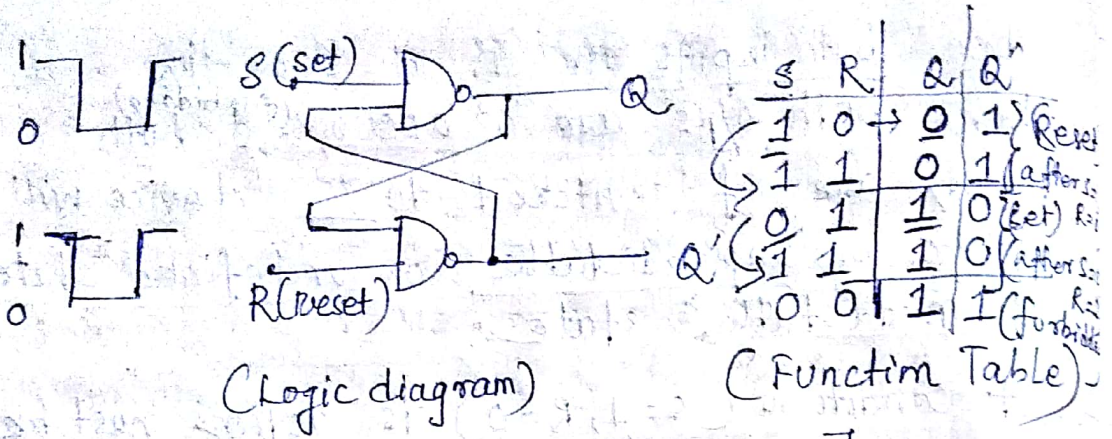 1
0
S(set)
Q
1
0
R(reset)
Q'
(Logic diagram)
S R Q Q'
1 0 → 0 1 } Reset
1 1 0 1 (after S=
0 1 1 0 (Set) R=1
1 1 1 0 (after S=1
R=1
0 0 1 1 (
(Function Table)